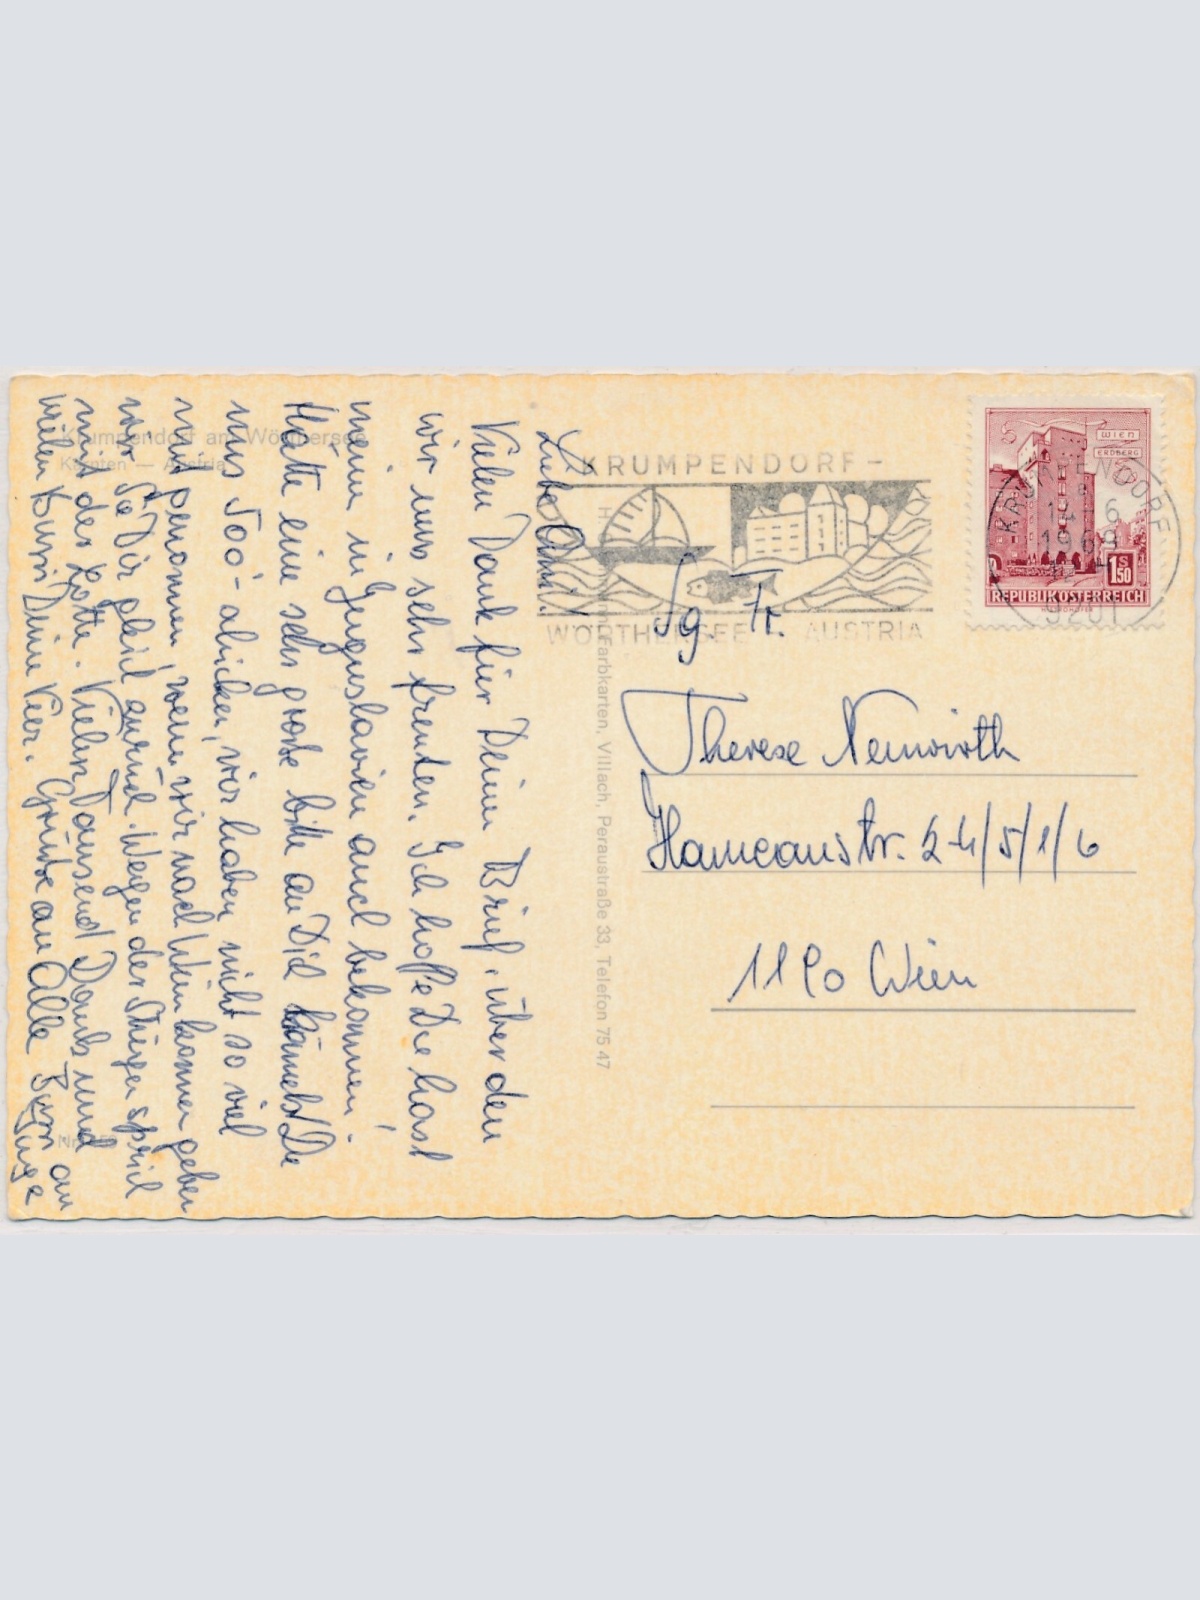 Krumpendorf am Wörthersee
Kärnten — Austria
Liebe Omi!
Vielen Dank für Deinen Brief, über den
wir uns sehr freuten. Ich hoffe Du hast
meine in Jugoslawien auch bekommen.
Hätte eine sehr große bitte an Dich könntest Du
uns 500'- schicken, wir haben nicht so viel
mitgenommen, wenn wir nach Wien kommen geben
wir sie Dir gleich zurück. Wegen der
mit der Lotte. Vielen Tausend Dank und
vielen Bussi Deine Vier. Grüße an Alle Bussi an
Inge
Farbkarten, Villach, Peraustraße 33, Telefon 75 47
KRUMPENDORF -
WÖRTHERSEE AUSTRIA
WIEN
ERDBERG
S
1 50
REPUBLIK ÖSTERREICH
KRUMPENDORF
1969
9201
Sg. Fr.
Therese Neuwirth
Hameaustr. 24/5/1/6
1190 Wien